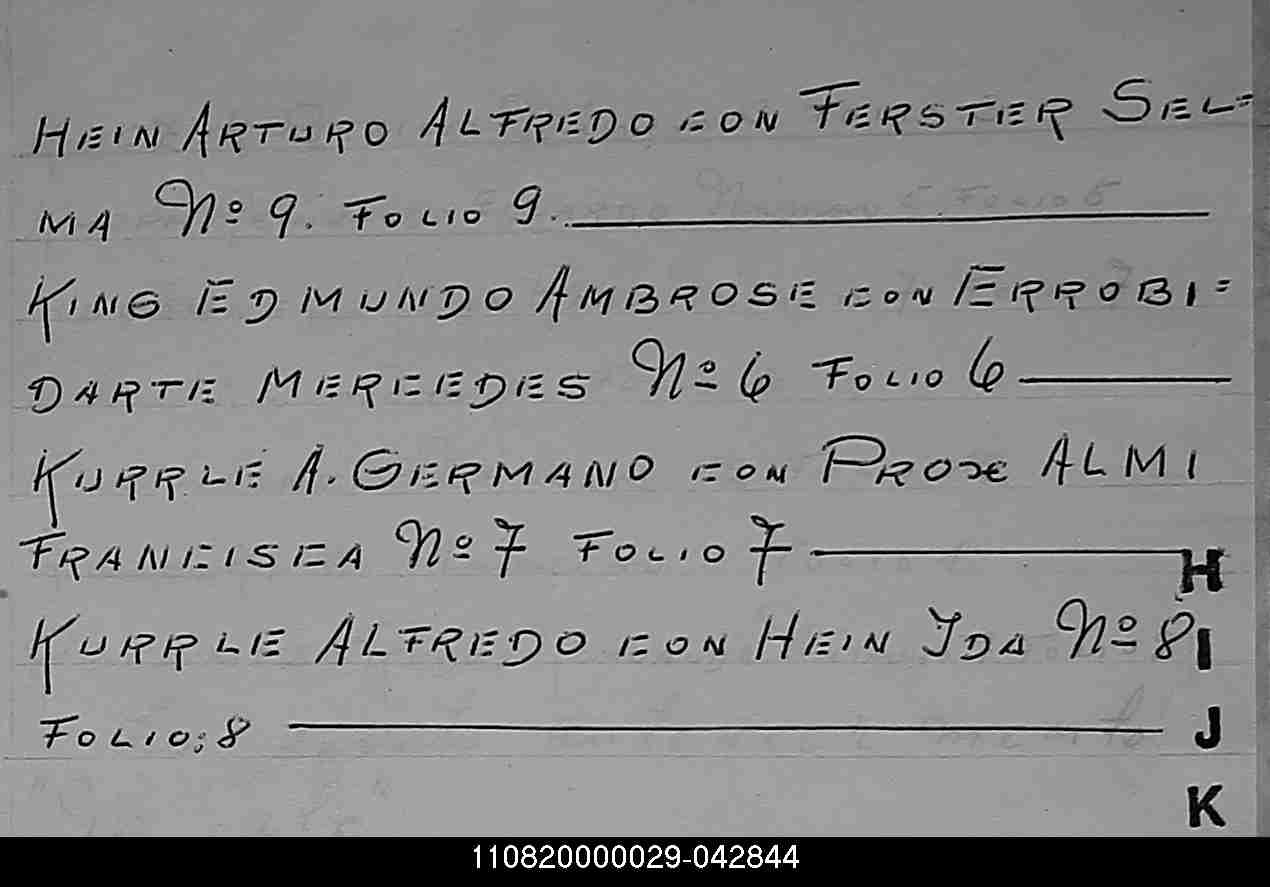 HEIN ARTURO ALFREDO CON FERSTER SEL=
MA Nº 9. FOLIO 9.
KING EDMUNDO AMBROSE CON ERROBI=
DARTE MERCEDES Nº 6 FOLIO 6
KURRLE A. GERMANO CON PROSE ALMI
FRANCISCA Nº 7 FOLIO 7
H
KURRLE ALFREDO CON HEIN IDA Nº 8
I
FOLIO: 8
J
K
110820000029-042844